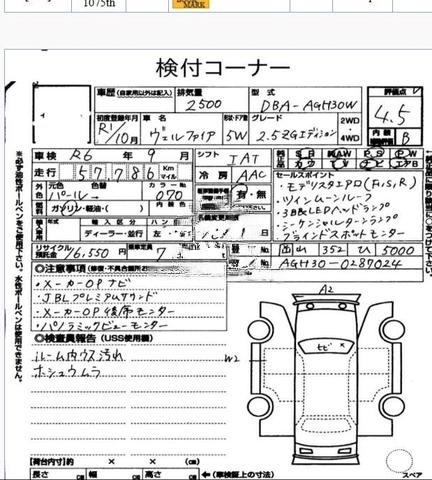 1075th
MARK
検付コーナー
車歴 (自家用以外は記入)
排気量
2500
型式
DBA-AGH30W
評価点
4.5
初度登録年月
R1/10月
車名
ヴェルファイア
5W
グレード
2.5Z Gエディション
2WD
4WD
内装
B
車検 R6年 9月
シフト IAT
走行 57,786 Km マイル
冷房 AAC
セールスポイント
・モデリスタエアロ(F,S,R)
・ツインムーンルーフ
・3眼LEDヘッドランプ
・シーケンシャルターンランプ
・ブラインドスポットモニター
外装色
パール
色替
カラーNo
070
有・無
燃料
ガソリン・軽油・( )
内装色
輸入車
ディーラー・並行
左・
リサイクル
16,550 円
乗車定員
7
352 ひ 5000
AGH30-0287024
◎注意事項
・メーカーOPナビ
・JBLプレミアムサウンド
・メーカーOP後席モニター
・パノラミックビューモニター
◎検査員報告 (USS使用欄)
ルーム内ウス汚れ
ホシュウムラ
A2
W2
ナビ
×
【荷台内寸】 × × (cm)
長さ cm 幅 cm 高さ cm
←(車検証上の寸法)
スペア
※必ず油性ボールペンをご使用下さい。水性ボールペンは使用できません。